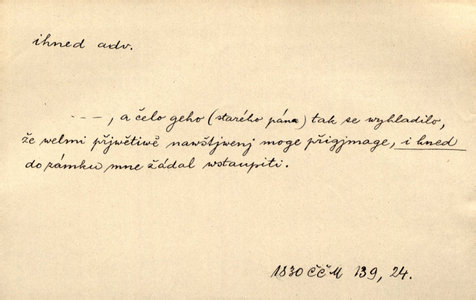 ihned adv.
---, a čelo geho (starého pána) tak se wyhladilo,
že welmi přjwětiwě nawštjwenj moge přigjmage, i hned
do zámku mne žádal wstaupiti.
1830 ČČM 139, 24.